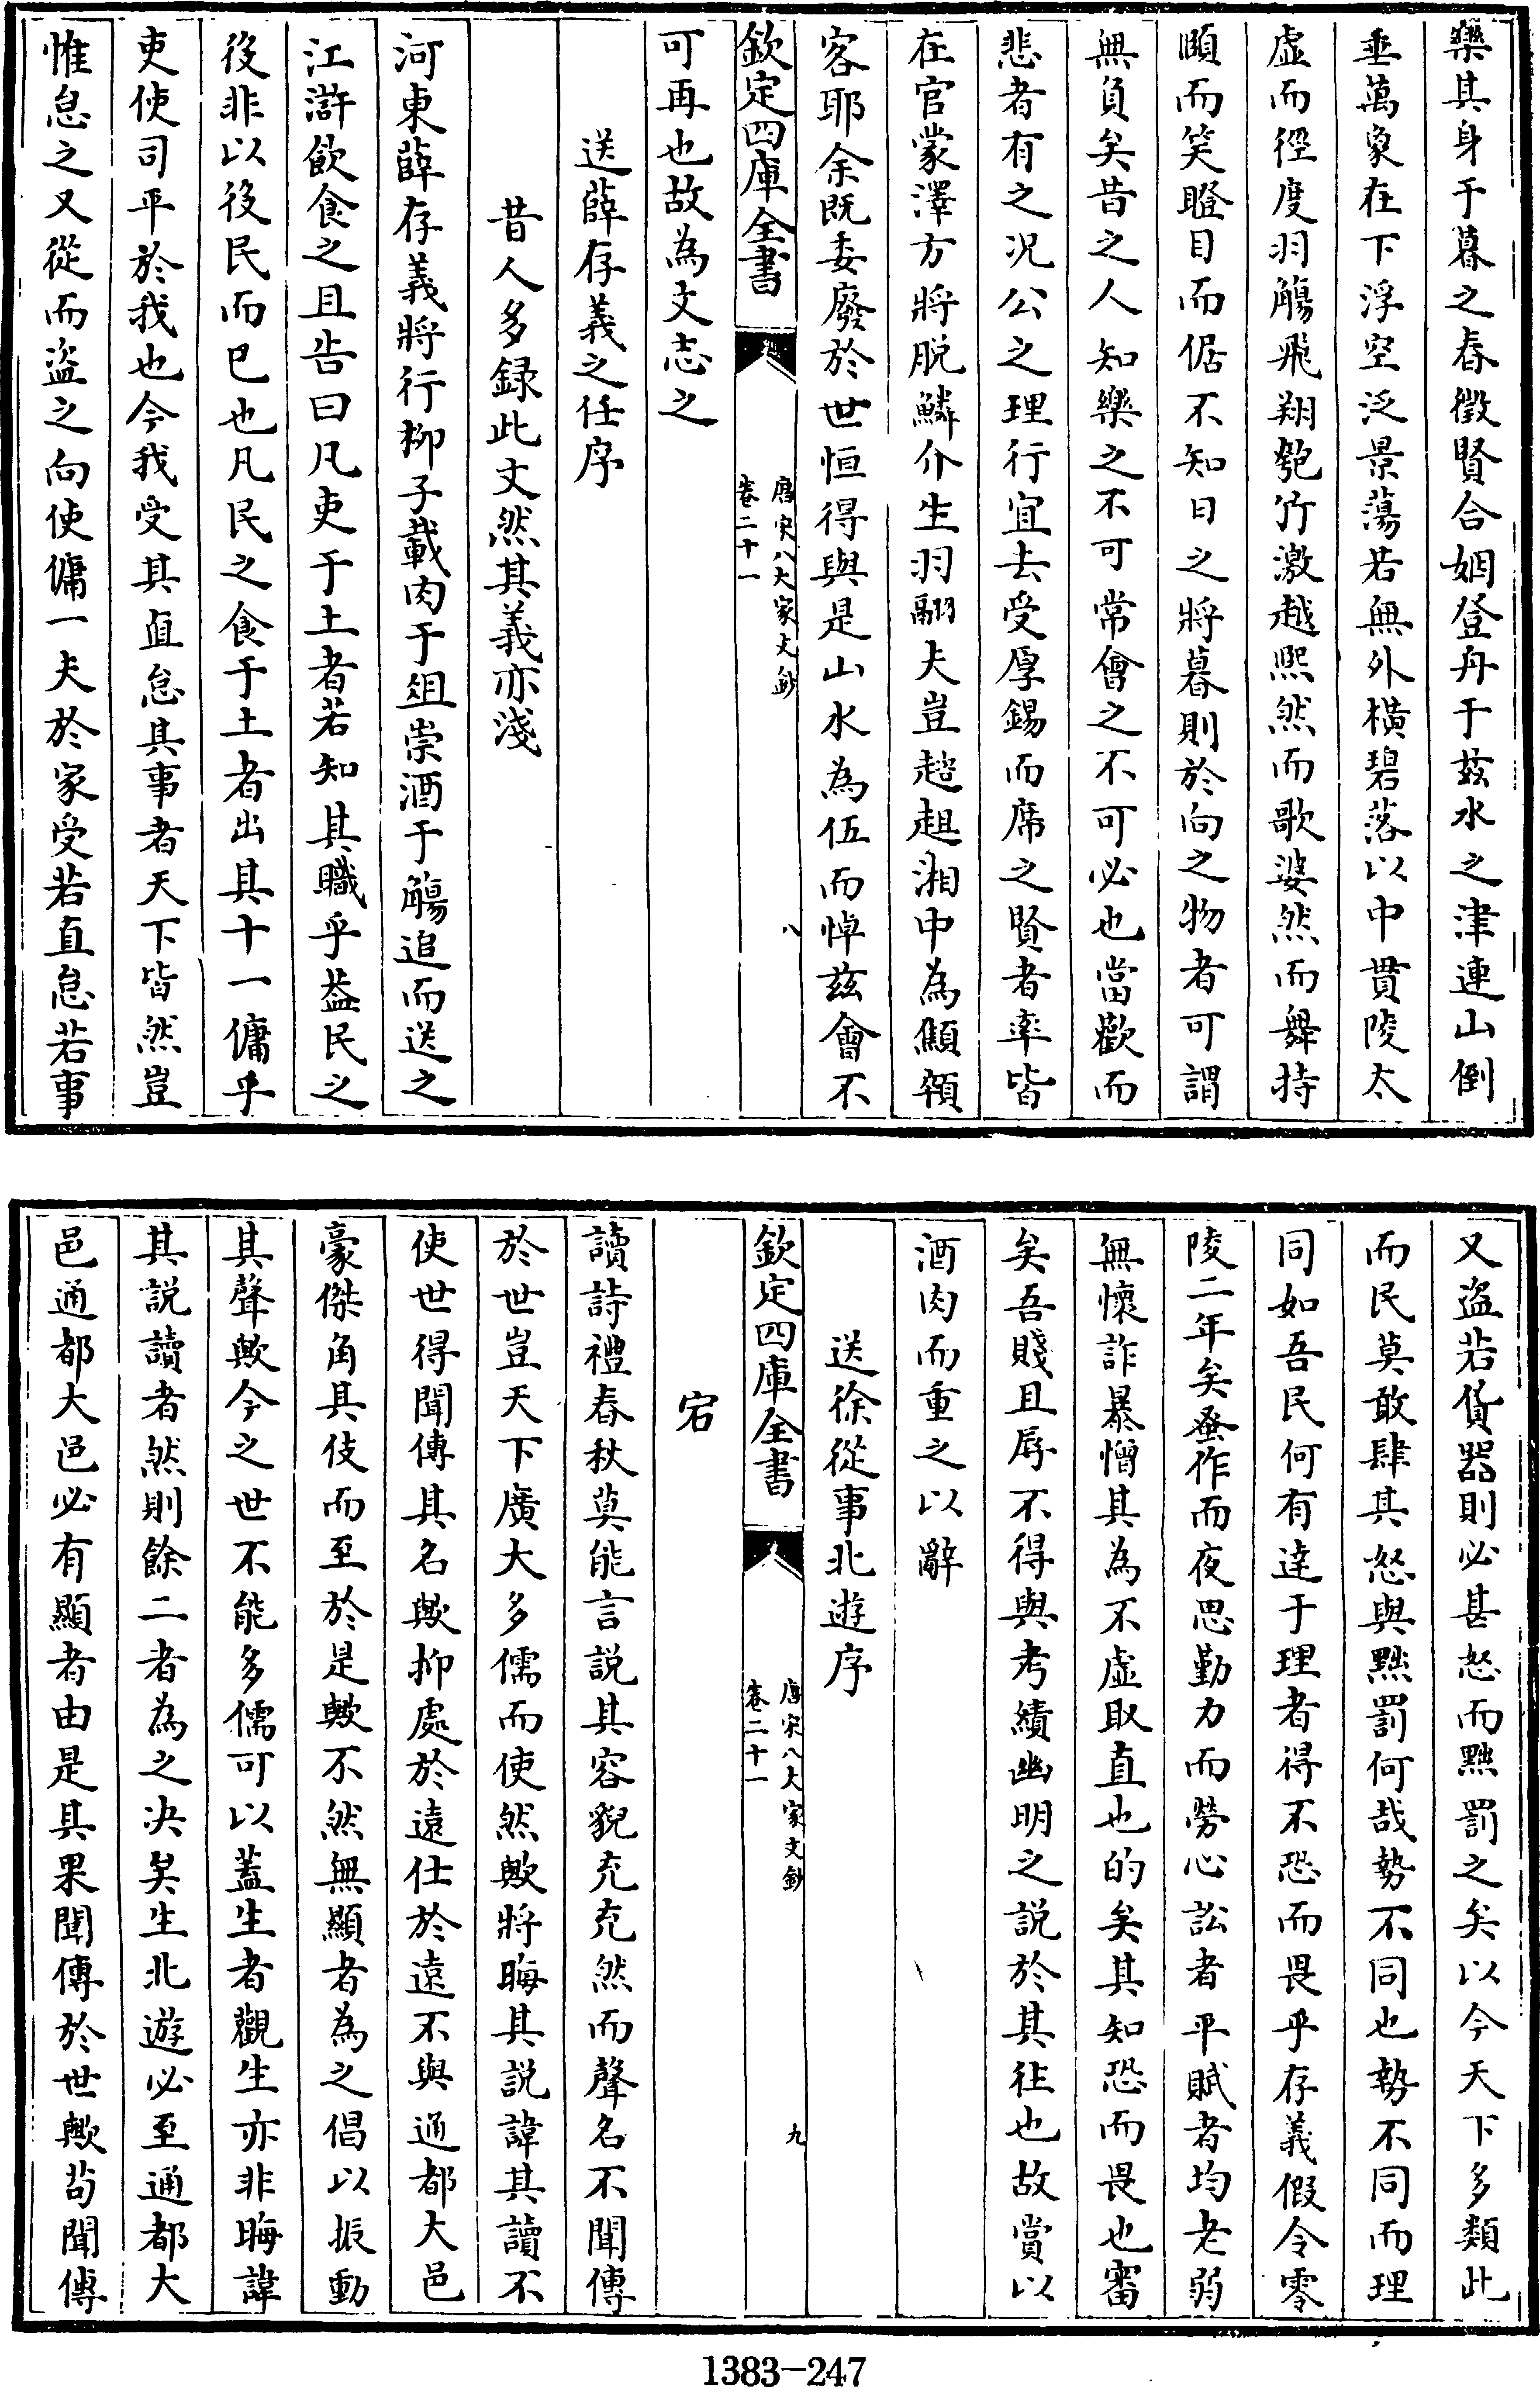 樂其身于暮之春徵賢合姻登舟于兹水之津連山倒
垂萬象在下浮空泛景蕩若無外横碧落以中貫陵太
虚而徑度羽觴飛翔匏竹激越熙然而歌婆然而舞持
頤而笑瞪目而倨不知日之將暮則於向之物者可謂
無負矣昔之人知樂之不可常會之不可必也當歡而
悲者有之况公之理行宜去受厚錫而席之賢者率皆
在官蒙澤方將脱鱗介生羽翮夫豈趑趄湘中為顦顇
客耶余既委廢於世恒得與是山水為伍而悼兹會不
欽定四庫全書
唐宋八大家文鈔
卷二十一
八
可再也故為文志之
送薛存義之任序
昔人多録此文然其義亦淺
河東薛存義將行柳子載肉于俎崇酒于觴追而送之
江滸飲食之且告曰凡吏于土者若知其職乎葢民之
役非以役民而已也凡民之食于土者出其十一傭乎
吏使司平於我也今我受其直怠其事者天下皆然豈
惟怠之又從而盜之向使傭一夫於家受若直怠若事
又盜若貨器則必甚怒而黜罰之矣以今天下多類此
而民莫敢肆其怒與黜罰何哉勢不同也勢不同而理
同如吾民何有達于理者得不恐而畏乎存義假令零
陵二年矣蚤作而夜思勤力而勞心訟者平賦者均老弱
無懷詐暴憎其為不虚取直也的矣其知恐而畏也審
矣吾賤且辱不得與考績幽明之説於其往也故賞以
酒肉而重之以辭
送徐從事北遊序
欽定四庫全書
唐宋八大家文鈔
卷二十一
九
宕
讀詩禮春秋莫能言説其容貌充充然而聲名不聞傳
於世豈天下廣大多儒而使然歟將晦其説諱其讀不
使世得聞傳其名歟抑處於遠仕於遠不與通都大邑
豪傑角其伎而至於是歟不然無顯者為之倡以振動
其聲歟今之世不能多儒可以蓋生者觀生亦非晦諱
其説讀者然則餘二者為之决矣生北遊必至通都大
邑通都大邑必有顯者由是其果聞傳於世歟苟聞傳
1383-247